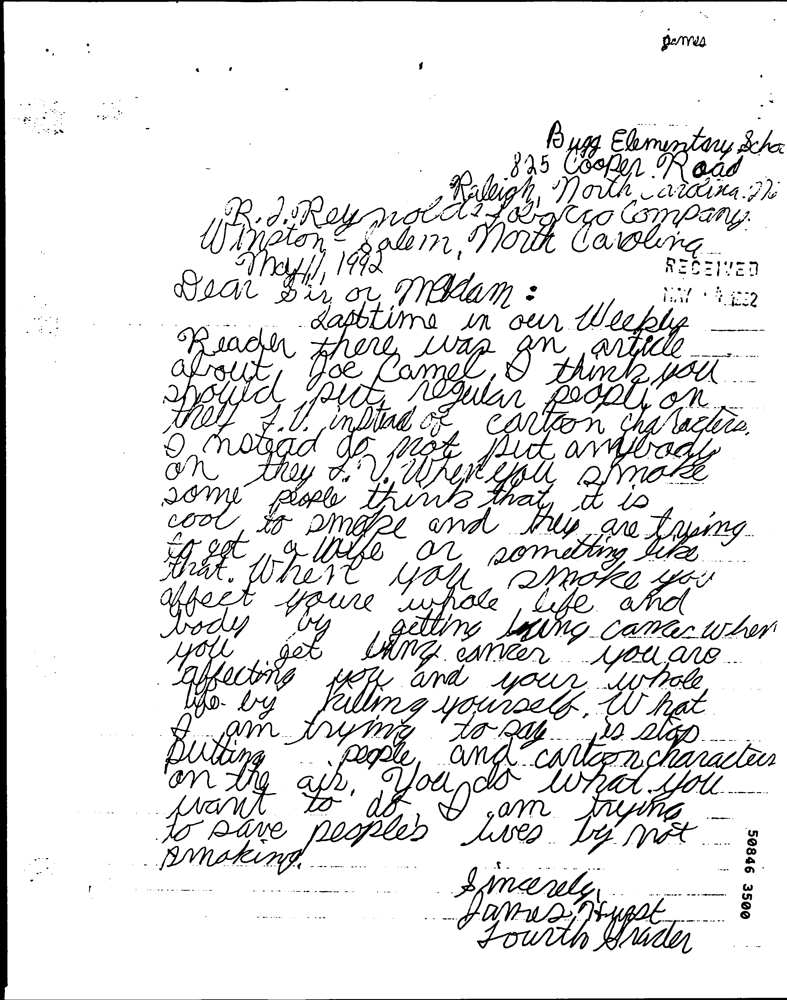 James
Bugg Elementary Scho
825 Cooper Road
Raleigh, North Carolina
R.J. Reynolds Tobacco Company
Winston-Salem, North Carolina
May 11, 1992
RECEIVED
MAY 1992
Dear Sir or Madam:
Lasttime in our Weekly
Reader there was an article
about Joe Camel. I think you
should put regular people on
they T.V. instead of cartoon characters.
Instead do not put anybody
on they T.V. When you smoke
some people think that it is
cool to smoke and they are trying
to get a wife or something like
that. When you smoke you
affect youre whole life and
body by getting lung cancer when
you get lung cancer you are
affecting you and your whole
life by killing yourself. What
I am trying to say is stop
putting people and cartoon characters
on the air. You do what you
want to do, I am trying
to save people's lives by not
smoking.
Sincerely,
James
Fourth Grader
50846 3500